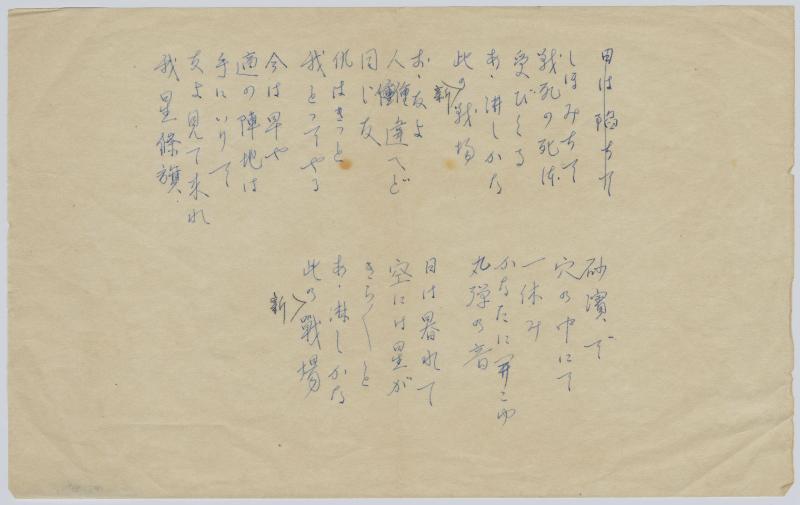 日は陥ちた
しほみちて
戦死の死体
受びくる
あゝ淋しかな
此の新戦場
おゝ友よ
人種違へど
同じ友
仇はきっと
我とってやる
今は早や
適の陣地は
手にいりて
友よ見て来れ
我星條旗.
砂濱で
穴の中にて
一休み
かなたに聞こゆ
丸弾の音
日は暮れて
空には星が
きら〱と
あゝ淋しかな
此の新戰場